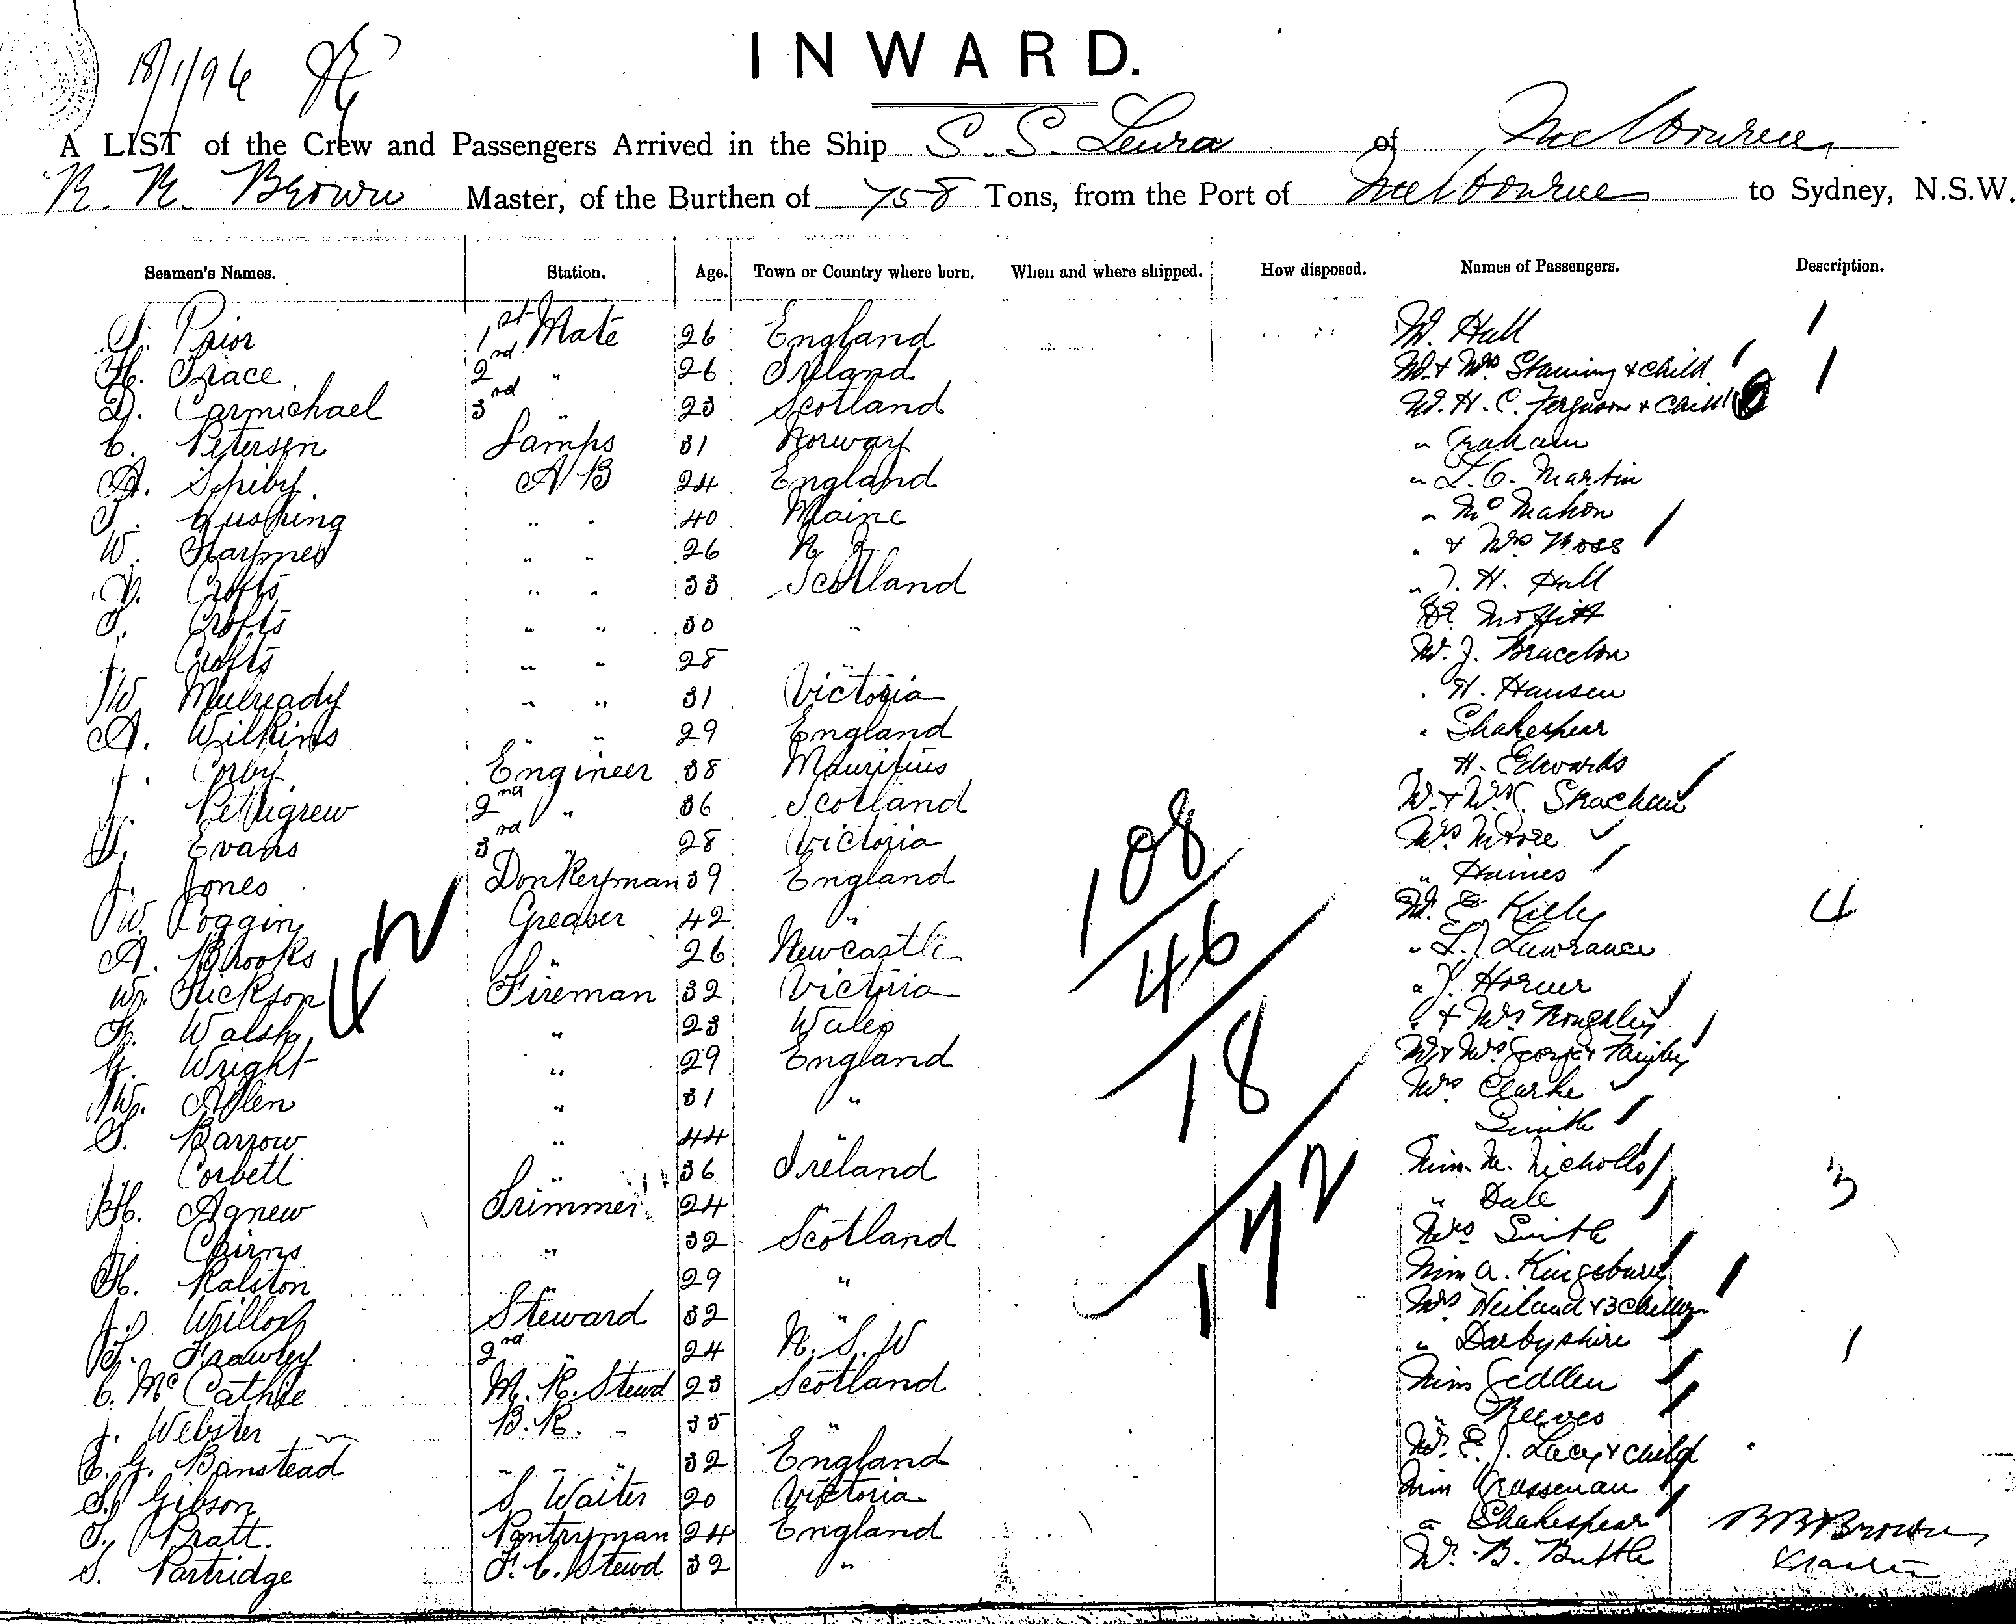 18/1/96
INWARD.
A LIST of the Crew and Passengers Arrived in the Ship S. S. Leura of Melbourne
R. R. Brown Master, of the Burthen of 758 Tons, from the Port of Melbourne to Sydney, N.S.W.
Seamen's Names. Station. Age. Town or Country where born. When and where shipped. How disposed. Names of Passengers. Description.
Prior 1st Mate 26 England Mr. Hall 1
H. Grace 2nd " 26 Ireland Mr & Mrs Staining & child 1
D. Carmichael 3rd " 23 Scotland Mr. H. C. Ferguson & Child
C. Petersen Lamps 31 Norway " Graham
A. Schiby AB 24 England " L. C. Martin
Cushing " " 40 Maine " McMahon
W. Haymes " " 26 N Z " & Mrs Ross
Crofts " " 33 Scotland " J. H. Hall
Crofts " " 30 " Dr. Moffitt
J. Crofts " " 28 " Mr. J. Bracelon
W. Mulready " " 31 Victoria " H. Hansen
A. Wilkins " " 29 England " Shakespear
J. Corby Engineer 38 Mauritius " H. Edwards
J. Pettigrew 2nd " 36 Scotland Mr & Mrs Strachan
Evans 3rd " 28 Victoria Mrs Moore
J. Jones Donkeyman 39 England " Haines
W. Coggin Greaser 42 " Mr. E Kelly 4
A. Brooks " 26 Newcastle " L. J. Lawrance
W. Hickson Fireman 32 Victoria " J. Horner
Walsh " 23 Wales " & Mrs Roughley
H. Wright " 29 England Mr & Mrs George & Family
W. Allen " 31 " Mrs Clarke
Barrow " 44 " Smith
Corbett " 36 Ireland Miss M. Nicholls
H. Agnew Trimmer 24 " " Dale 3
J. Cairns " 32 Scotland Mrs Smith
H. Ralston 29 " Miss A. Kingsbury
J. Willox Steward 32 " Mrs Weiland & 3 children
Frawley 2nd " 24 N. S. W " Darbyshire 1
C. McCathie M. R. Stewd 23 Scotland Miss Geddes
J. Webster B. R. " 35 " " Reeves
E. G. Banstead " " " 32 England Mr. E. J. Lacy & child
S. Gibson S Waiter 20 Victoria Miss Grasseman
Pratt. Pantryman 24 England " Shakespear
S. Partridge F. C. Stewd 32 " Mr. B. Buttle
42
108
46
18
172
R R Brown
Master